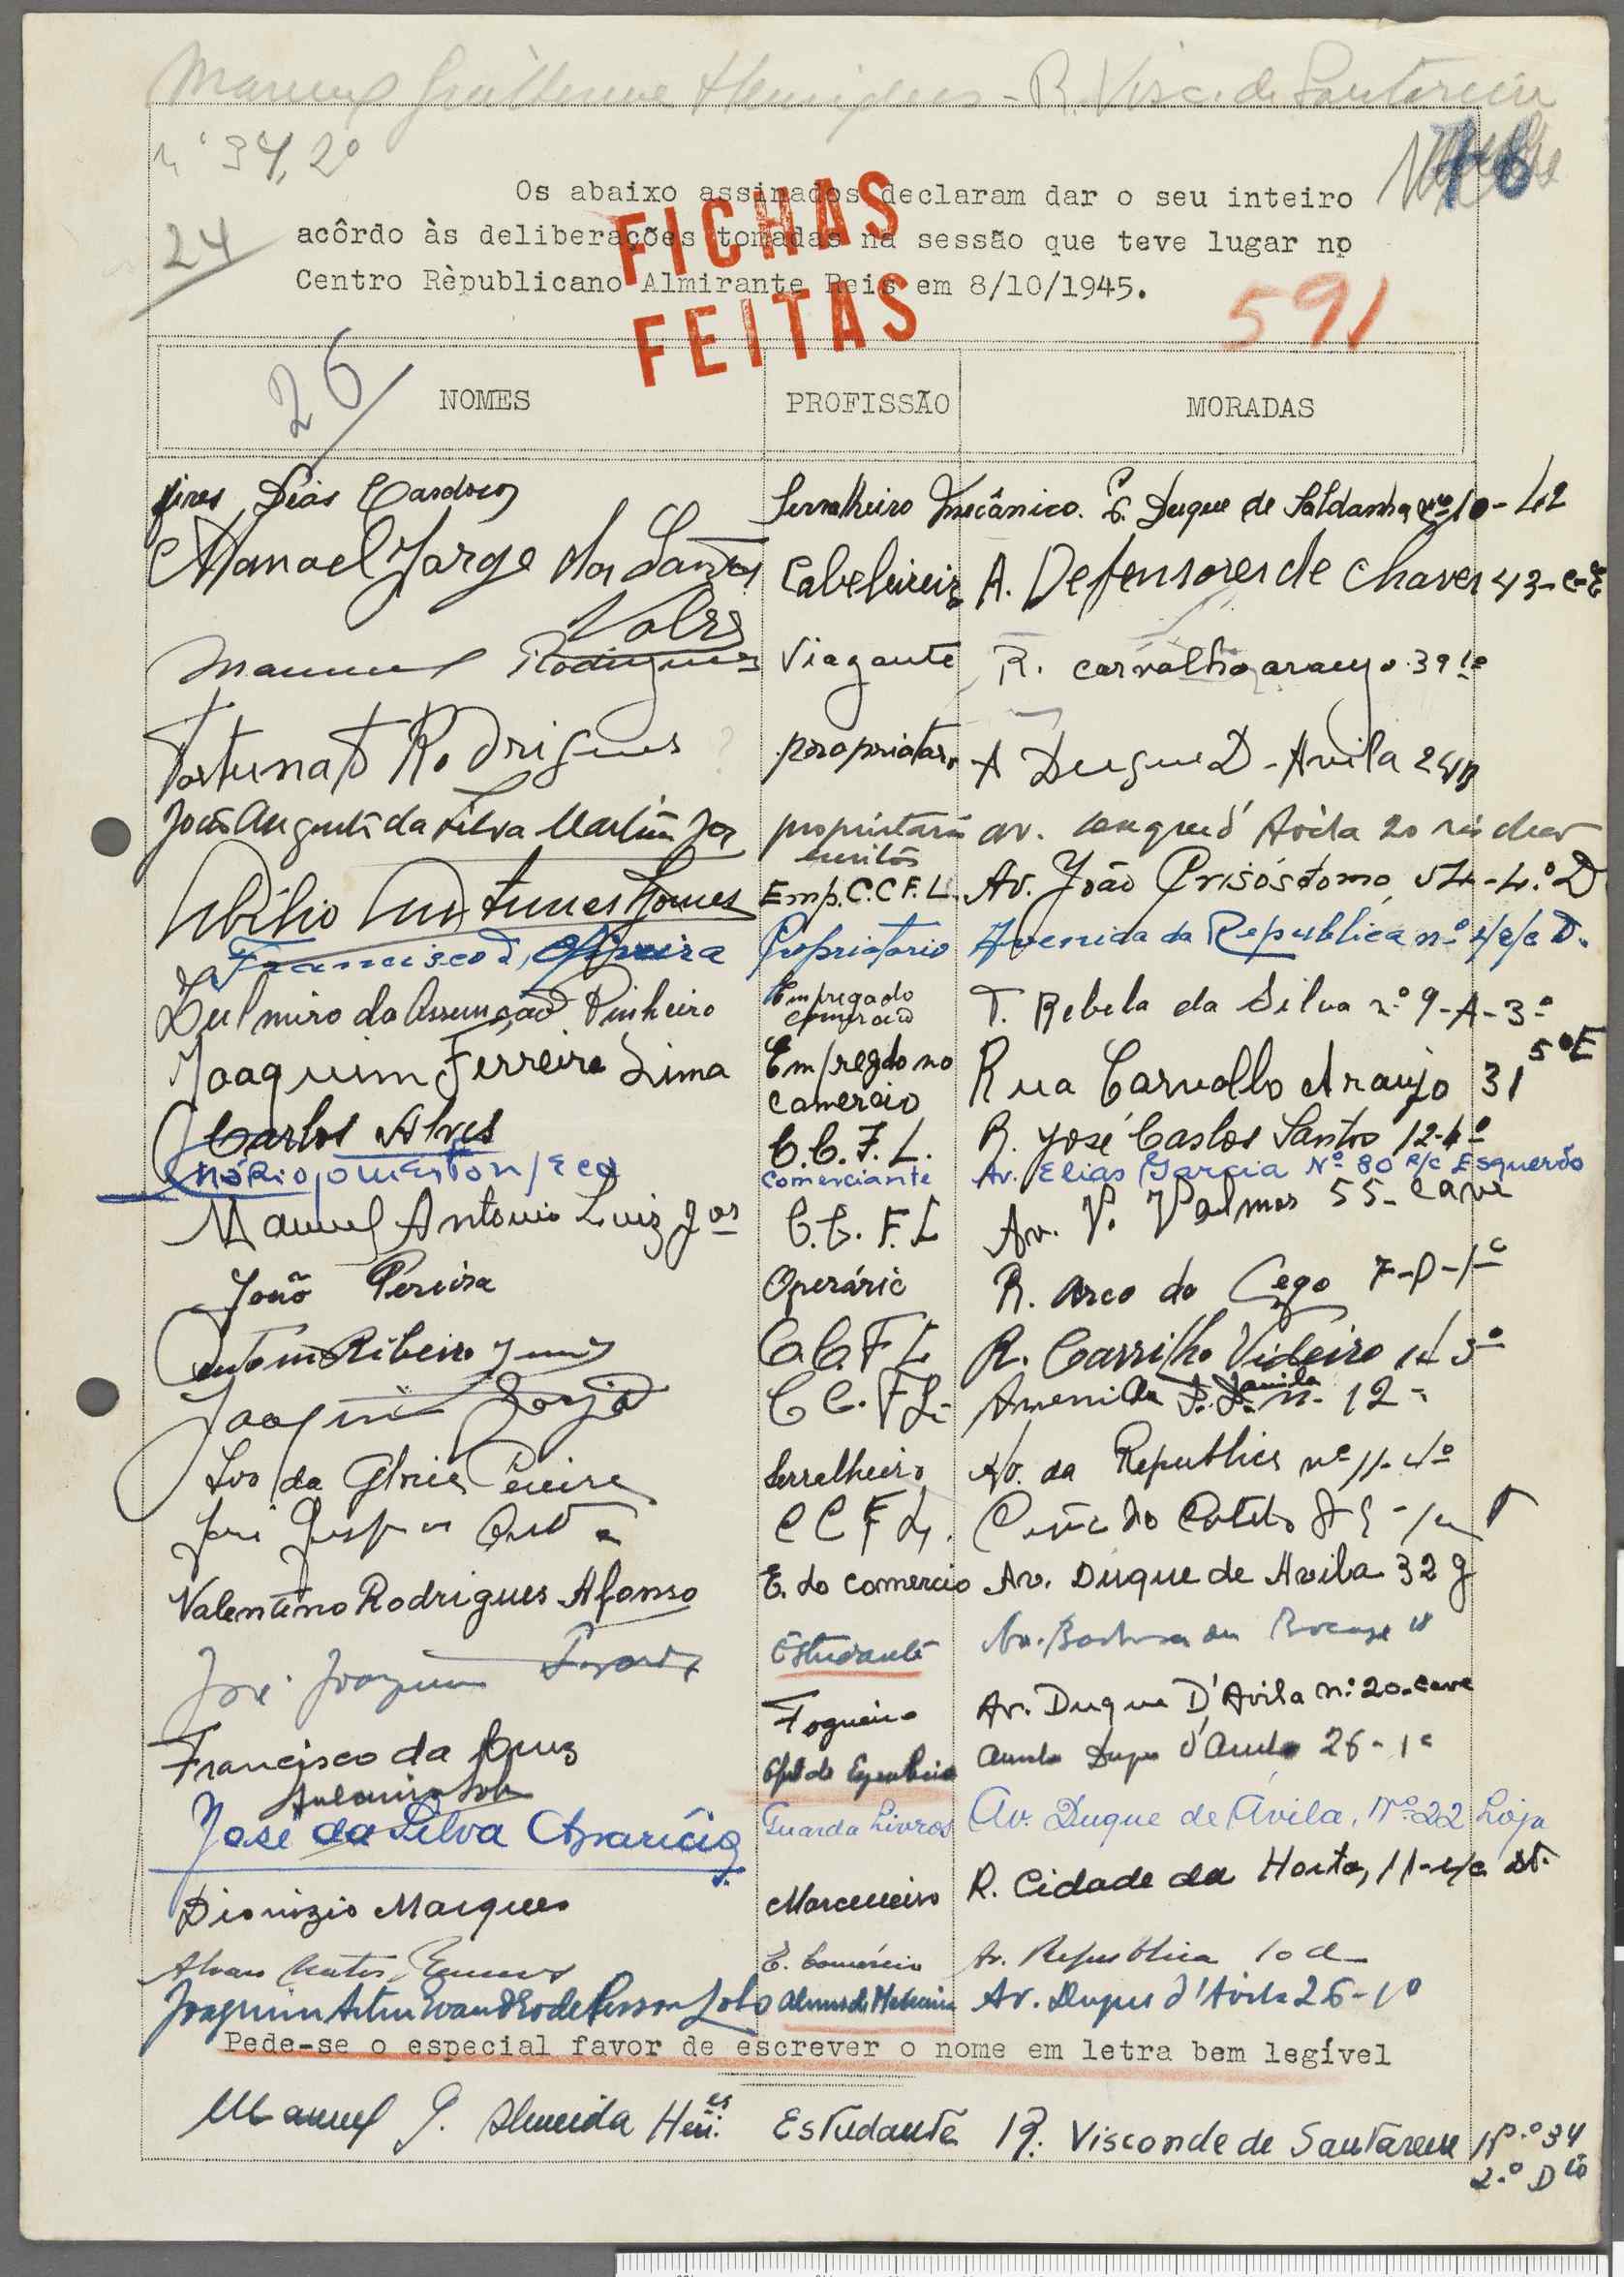 Manuel Guilherme Henriques - R. Visc. de Santarem
nº 34, 2º
76
Os abaixo assinados declaram dar o seu inteiro
acôrdo às deliberações tomadas na sessão que teve lugar no
Centro Rèpublicano Almirante Reis em 8/10/1945.
24
FICHAS
FEITAS
591
26
NOMES PROFISSÃO MORADAS
Pires Dias Cardoso Serralheiro Mecânico. P. Duque de Saldanha nº 10-42
Manoel Jorge dos Santos Cabeleireiro A. Defensores de Chaves 43-c-E
Manuel Rodrigues Viagante R. carvalho araujo 39 1º
Fortunato Rodrigues propriatario A Duque D-Avila 24
João Augusto da Silva Martins Jor proprietario av. Duque d'Avila 20
Abilio Antunes Gomes Emp. C.C.F.L. Av. João Crisóstomo, 54-4.º D
Francisco d'Oliveira Propriatario Avenida da Republica nº 4 r/c D.
Zulmiro da Assunção Pinheiro Empregado comercio T. Rebelo da Silva nº 9-A-3º
Joaquim Ferreira Lima Empregdo no comercio Rua Carvalho Araujo 31 5ºE
Carlos Alves C.C.F.L. R. José Carlos Santos 12-4º
Comerciante Av. Elias Garcia Nº 80 R/c Esquerdo
Manuel Antonio Luiz Jor C.C.F.L Av. V. Valmor 55-cave
João Pereira Operário R. Arco do Cego 7-P-1º
Antonio Ribeiro C.C.F L R. Carrilho Videira 3º
Joaquim C C. F L. Avenida D. Avila n. 12
da Gloria Pereira Serralheiro Av. da Republica nº 11-4º
C C F L.
Valentino Rodrigues Afonso E. do comercio Av. Duque de Avila 32 g
José Joaquim Estudante Av. Barbosa du Bocage
Fogueiro Av. Duque D'Avila n.º 20-cave
Francisco da Cruz
Duque d'Avila 26-1º
José da Silva Aparicio Guarda Livros Av. Duque de Ávila, Nº 22 Loja
Dionizio Marques Marceneiro R. Cidade da Horta, 11-r/c dt.
Alvaro Matos E. Comércio Av. Republica 10 d
Joaquim Artur Lobo aluno de Medicina Av. Duque d'Ávila 26-1º
Pede-se o especial favor de escrever o nome em letra bem legível
Manuel G. Almeida Hen.es Estudante R. Visconde de Santarem Nº 34
2.º Dto